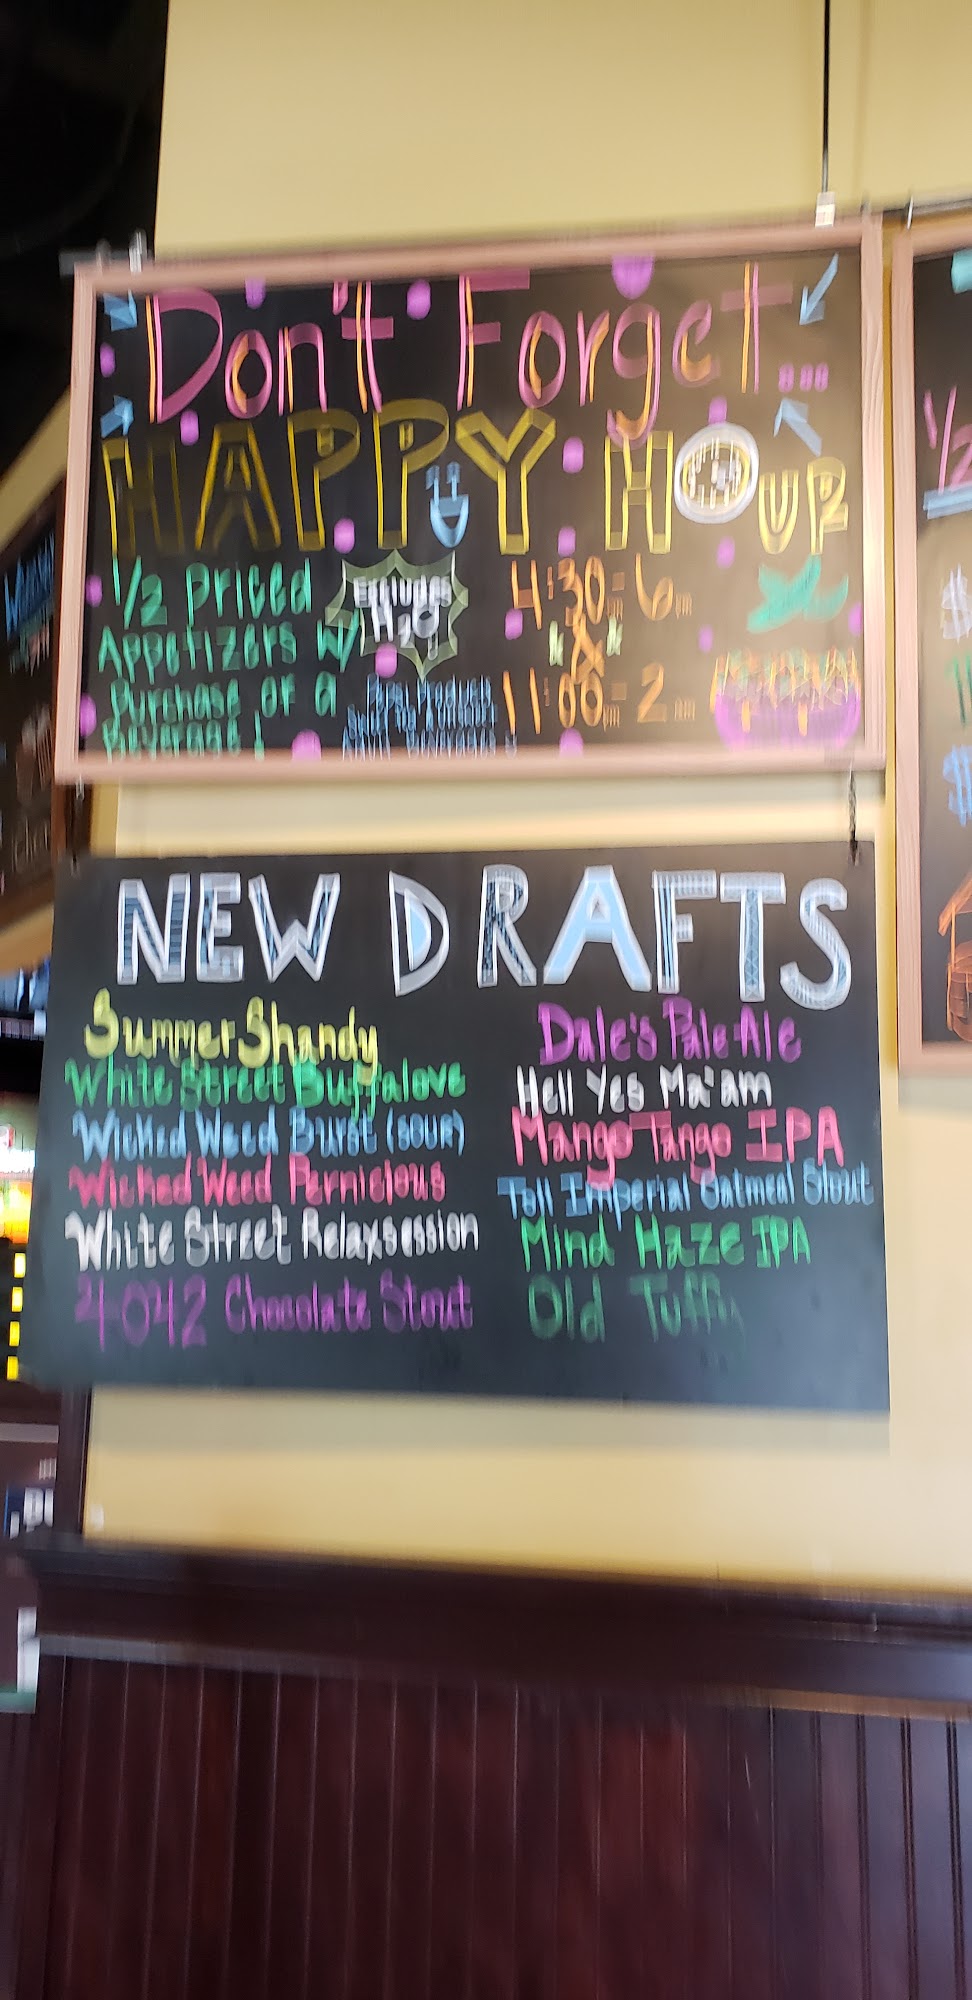 Don't Forget...
HAPPY HOUR
1/2 Priced
Appetizers w/
Purchase of a
Beverage!
Excludes
H2O
Pepsi Products
4:30pm-6pm
&
11:00pm-2am
NEW DRAFTS
Summer Shandy
White Street Buffalove
Wicked Weed Burst (SOUR)
Wicked Weed Pernicious
White Street Relaxsession
4042 Chocolate Stout
Dale's Pale Ale
Hell Yes Ma'am
Mango Tango IPA
Toll Imperial Oatmeal Stout
Mind Haze IPA
Old Tuffy
1/2
$
$